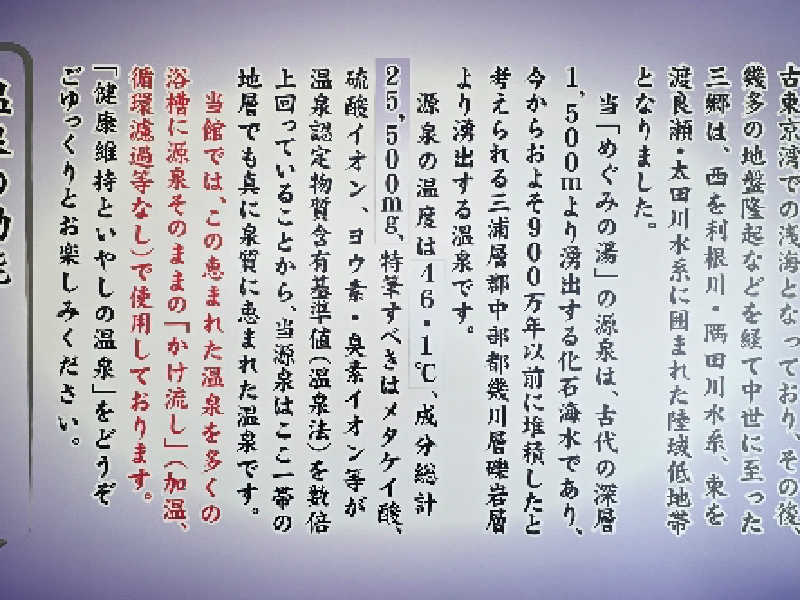 古東京湾での浅海となっており、その後、
幾多の地盤隆起などを経て中世に至った
三郷は、西を利根川・隅田川水系、東を
渡良瀬・太田川水系に囲まれた陸域低地帯
となりました。
当「めぐみの湯」の源泉は、古代の深層
1,500mより湧出する化石海水であり、
今からおよそ900万年以前に堆積したと
考えられる三浦層群中部都幾川層礫岩層
より湧出する温泉です。
源泉の温度は46・1℃、成分総計
25,500mg、特筆すべきはメタケイ酸、
硫酸イオン、ヨウ素・臭素イオン等が
温泉認定物質含有基準値(温泉法)を数倍
上回っていることから、当源泉はここ一帯の
地層でも真に泉質に恵まれた温泉です。
当館では、この恵まれた温泉を多くの
浴槽に源泉そのままの「かけ流し」(加温、
循環濾過等なし)で使用しております。
「健康維持といやしの温泉」をどうぞ
ごゆっくりとお楽しみください。